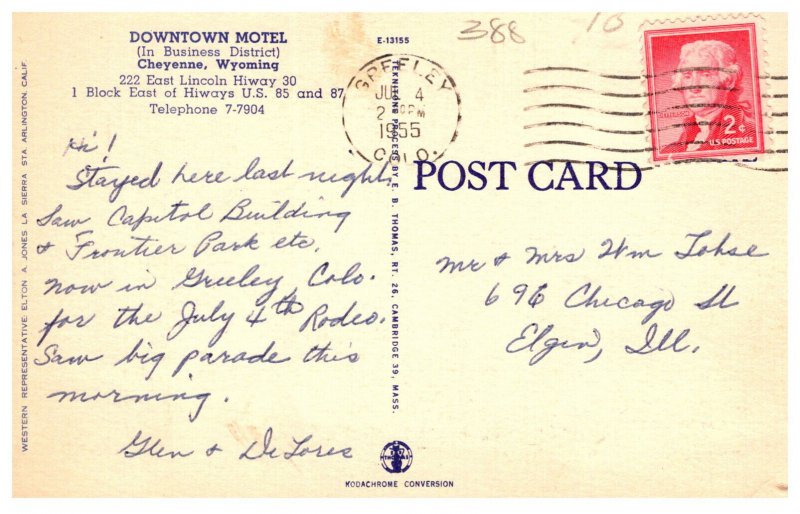 DOWNTOWN MOTEL
(In Business District)
Cheyenne, Wyoming
222 East Lincoln Hiway 30
1 Block East of Hiways U.S. 85 and 87
Telephone 7-7904
E-13155
388
10
GREELEY
JUL 4
2 PM
1955
COLO.
2¢
U.S. POSTAGE
Hi!
Stayed here last night,
Saw Capitol Building
& Frontier Park etc.
now in Greeley, Colo.
for the July 4th Rodeo.
Saw big parade this
morning.
Glen & DeLores
POST CARD
Mr & Mrs Wm Tohse
696 Chicago St
Elgin, Ill.
WESTERN REPRESENTATIVE: ELTON A. JONES LA SIERRA STA. ARLINGTON, CALIF.
TEKNITONE PROCESS BY E. B. THOMAS, RT. 26, CAMBRIDGE 39, MASS.
THOMAS
KODACHROME CONVERSION